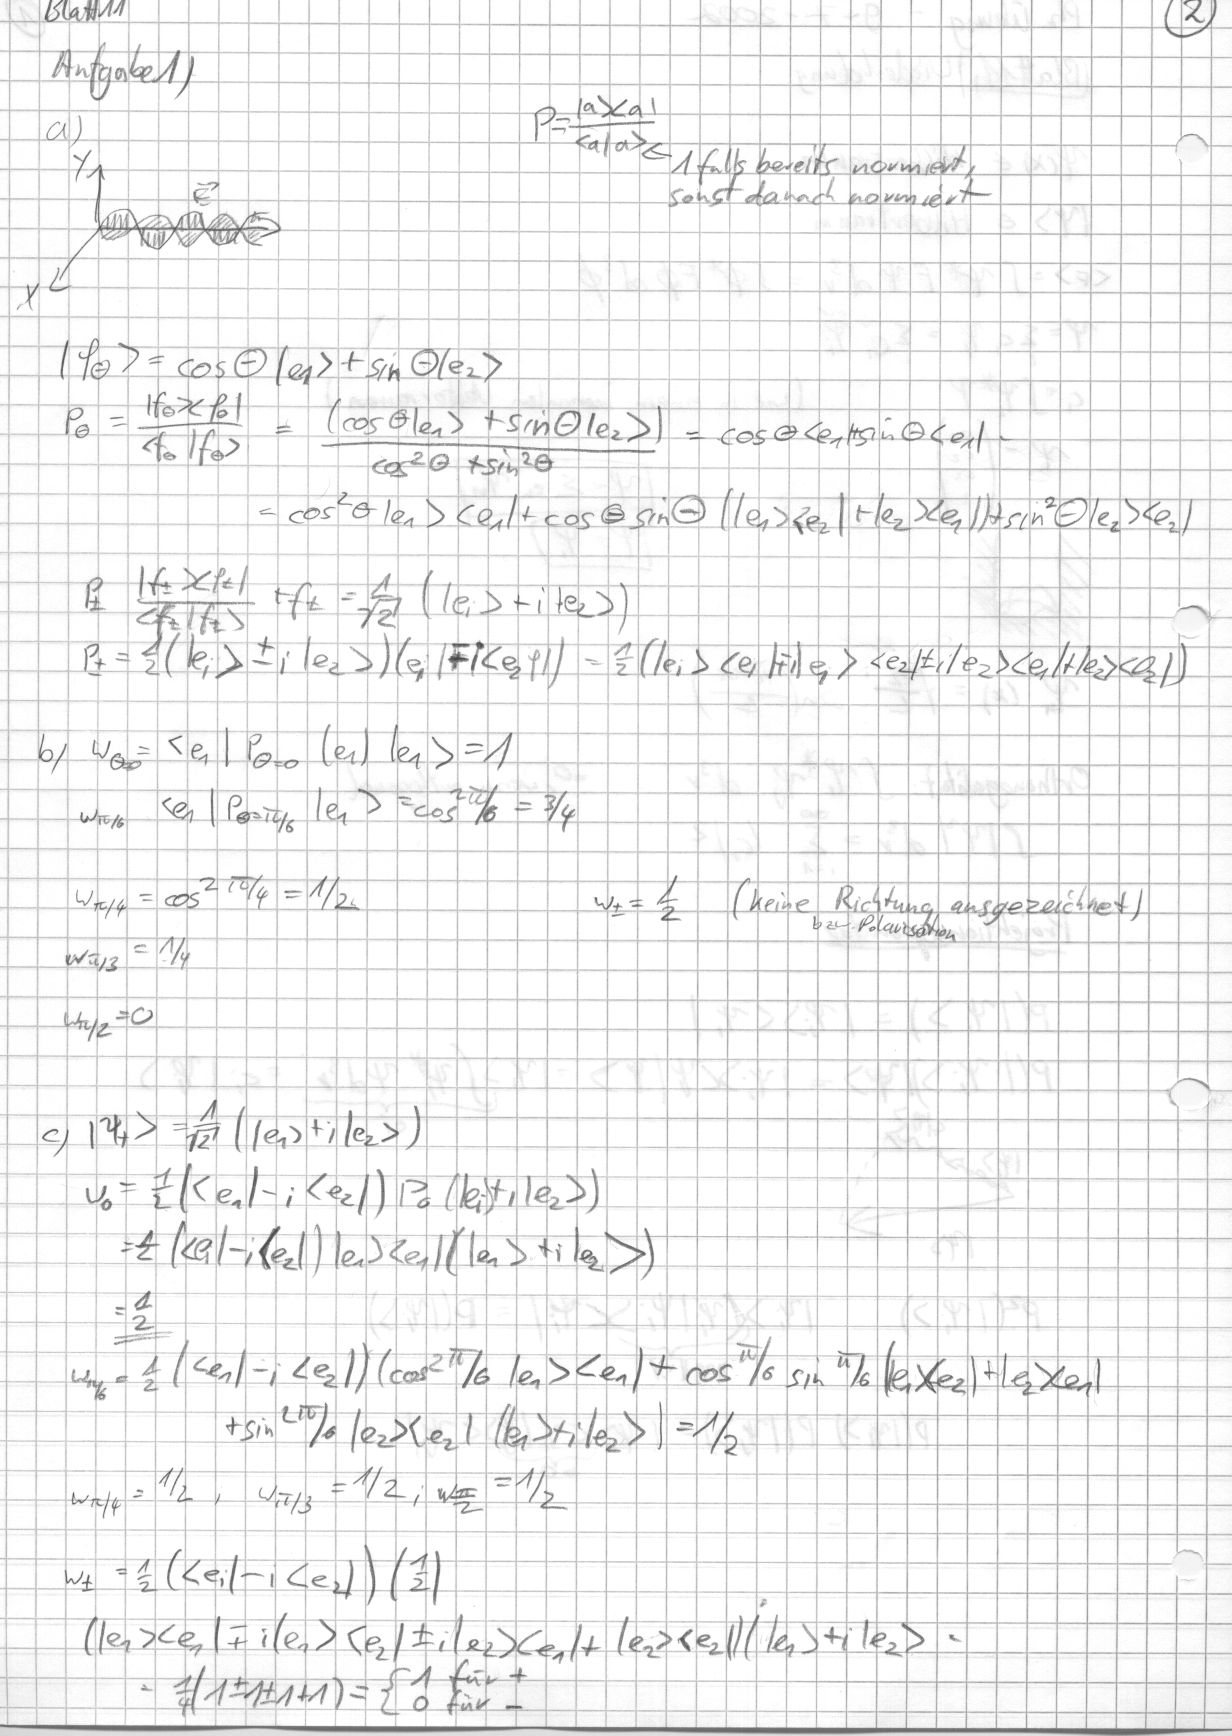 Blatt 11
2
Aufgabe 1)
a)
P = |a><a| / <a|a> ← 1 falls bereits normiert,
sonst danach normiert
Y
E⃗
X
|φ_Θ> = cos Θ |e₁> + sin Θ |e₂>
P_Θ = |f_Θ><f_Θ| / <f_Θ|f_Θ> = (cos Θ|e₁> + sin Θ|e₂>) / cos²Θ + sin²Θ = cos Θ <e₁| + sin Θ <e₁| -
= cos²Θ |e₁><e₁| + cos Θ sin Θ (|e₁><e₂| + |e₂><e₁|) + sin²Θ |e₂><e₂|
P_± |f_±><f_±| / <f_±|f_±> + f_± = 1/√2 (|e₁> + i |e₂>)
P_± = 1/2 (|e₁> ± i |e₂>)(e₁| ∓ i <e₂|) = 1/2 (|e₁><e₁| ∓ i|e₁><e₂| ± i|e₂><e₁| + |e₂><e₂|)
b) w_Θ=0 = <e₁| P_Θ=0 (e₁) |e₁> = 1
w_π/6 <e₁| P_Θ=π/6 |e₁> = cos² π/6 = 3/4
w_π/4 = cos² π/4 = 1/2
w_± = 1/2 (keine Richtung ausgezeichnet)
bzw Polarisation
w_π/3 = 1/4
w_π/2 = 0
c) |Ψ₊> = 1/√2 (|e₁> + i |e₂>)
w₀ = 1/2 (<e₁| - i <e₂|) P₀ (|e₁> + i |e₂>)
= 1/2 (<e₁| - i <e₂|) |e₁><e₁| (|e₁> + i |e₂>)
= 1/2
w_π/6 = 1/2 (<e₁| - i <e₂|)(cos² π/6 |e₁><e₁| + cos π/6 sin π/6 (|e₁><e₂| + |e₂><e₁|
+ sin² π/6 |e₂><e₂| (|e₁> + i |e₂>) = 1/2
w_π/4 = 1/2 , w_π/3 = 1/2 ; w_π/2 = 1/2
w_± = 1/2 (<e₁| - i <e₂|) (1/2)
(|e₁><e₁| ∓ i |e₁><e₂| ± i |e₂><e₁| + |e₂><e₂|)(|e₁> + i |e₂> -
= 1/4 (1 ± 1 ± 1 + 1) = { 1 für +
0 für -